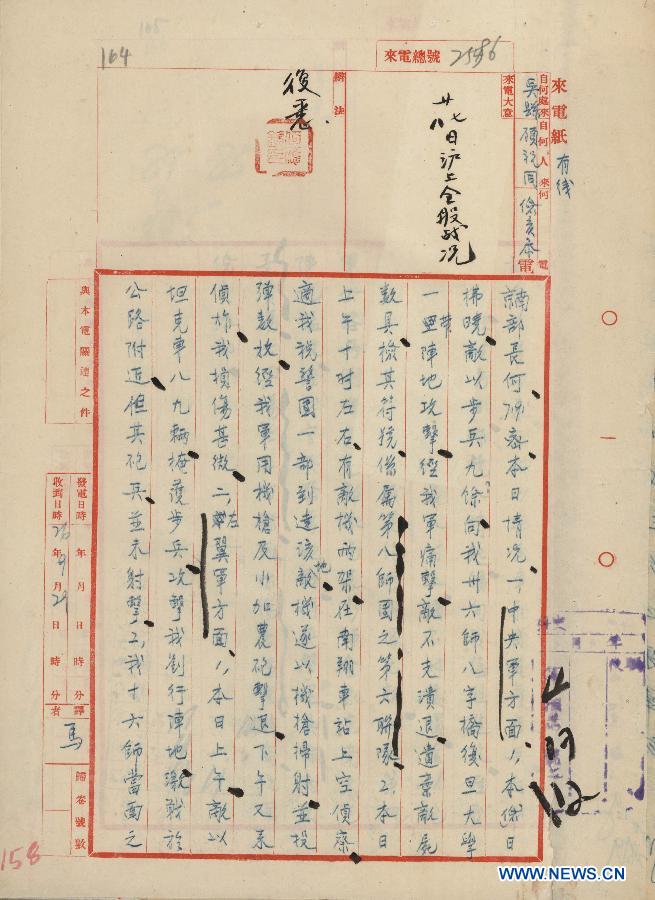 164
來電總號 2586
來電紙
有线
自何處來 自何人來 何電
吳縣顧祝同
來電大意
廿七日沪上全般战况
辦法
復悉
南部長何
密本日情況一、中央軍方面1、本 日
拂曉敵以步兵九 餘向我卅六師八字橋復旦大學
一帶陣地攻擊經我軍痛擊敵不克潰退遺棄敵屍
數具檢其符號係屬第八師團之第六聯隊2、本日
上午十时左右有敵機兩架在南翔車站上空偵察
適我稅警團一部到達該地敵機遂以機槍掃射並投
彈數 經我軍用機槍及小加農砲擊退下午又來
偵炸我損傷甚微二、左翼軍方面1、本日上午敵以
坦克車八九輛掩護步兵攻擊我劉行陣地激戰於
公路附近但其砲兵並未射擊2、我十六師當面之
與本電關連之件
發電日時 年 月 日 時 分
收到日時 26年9月29日 時 分
譯者 馬
歸卷號數
158
112
WWW.NEWS.CN